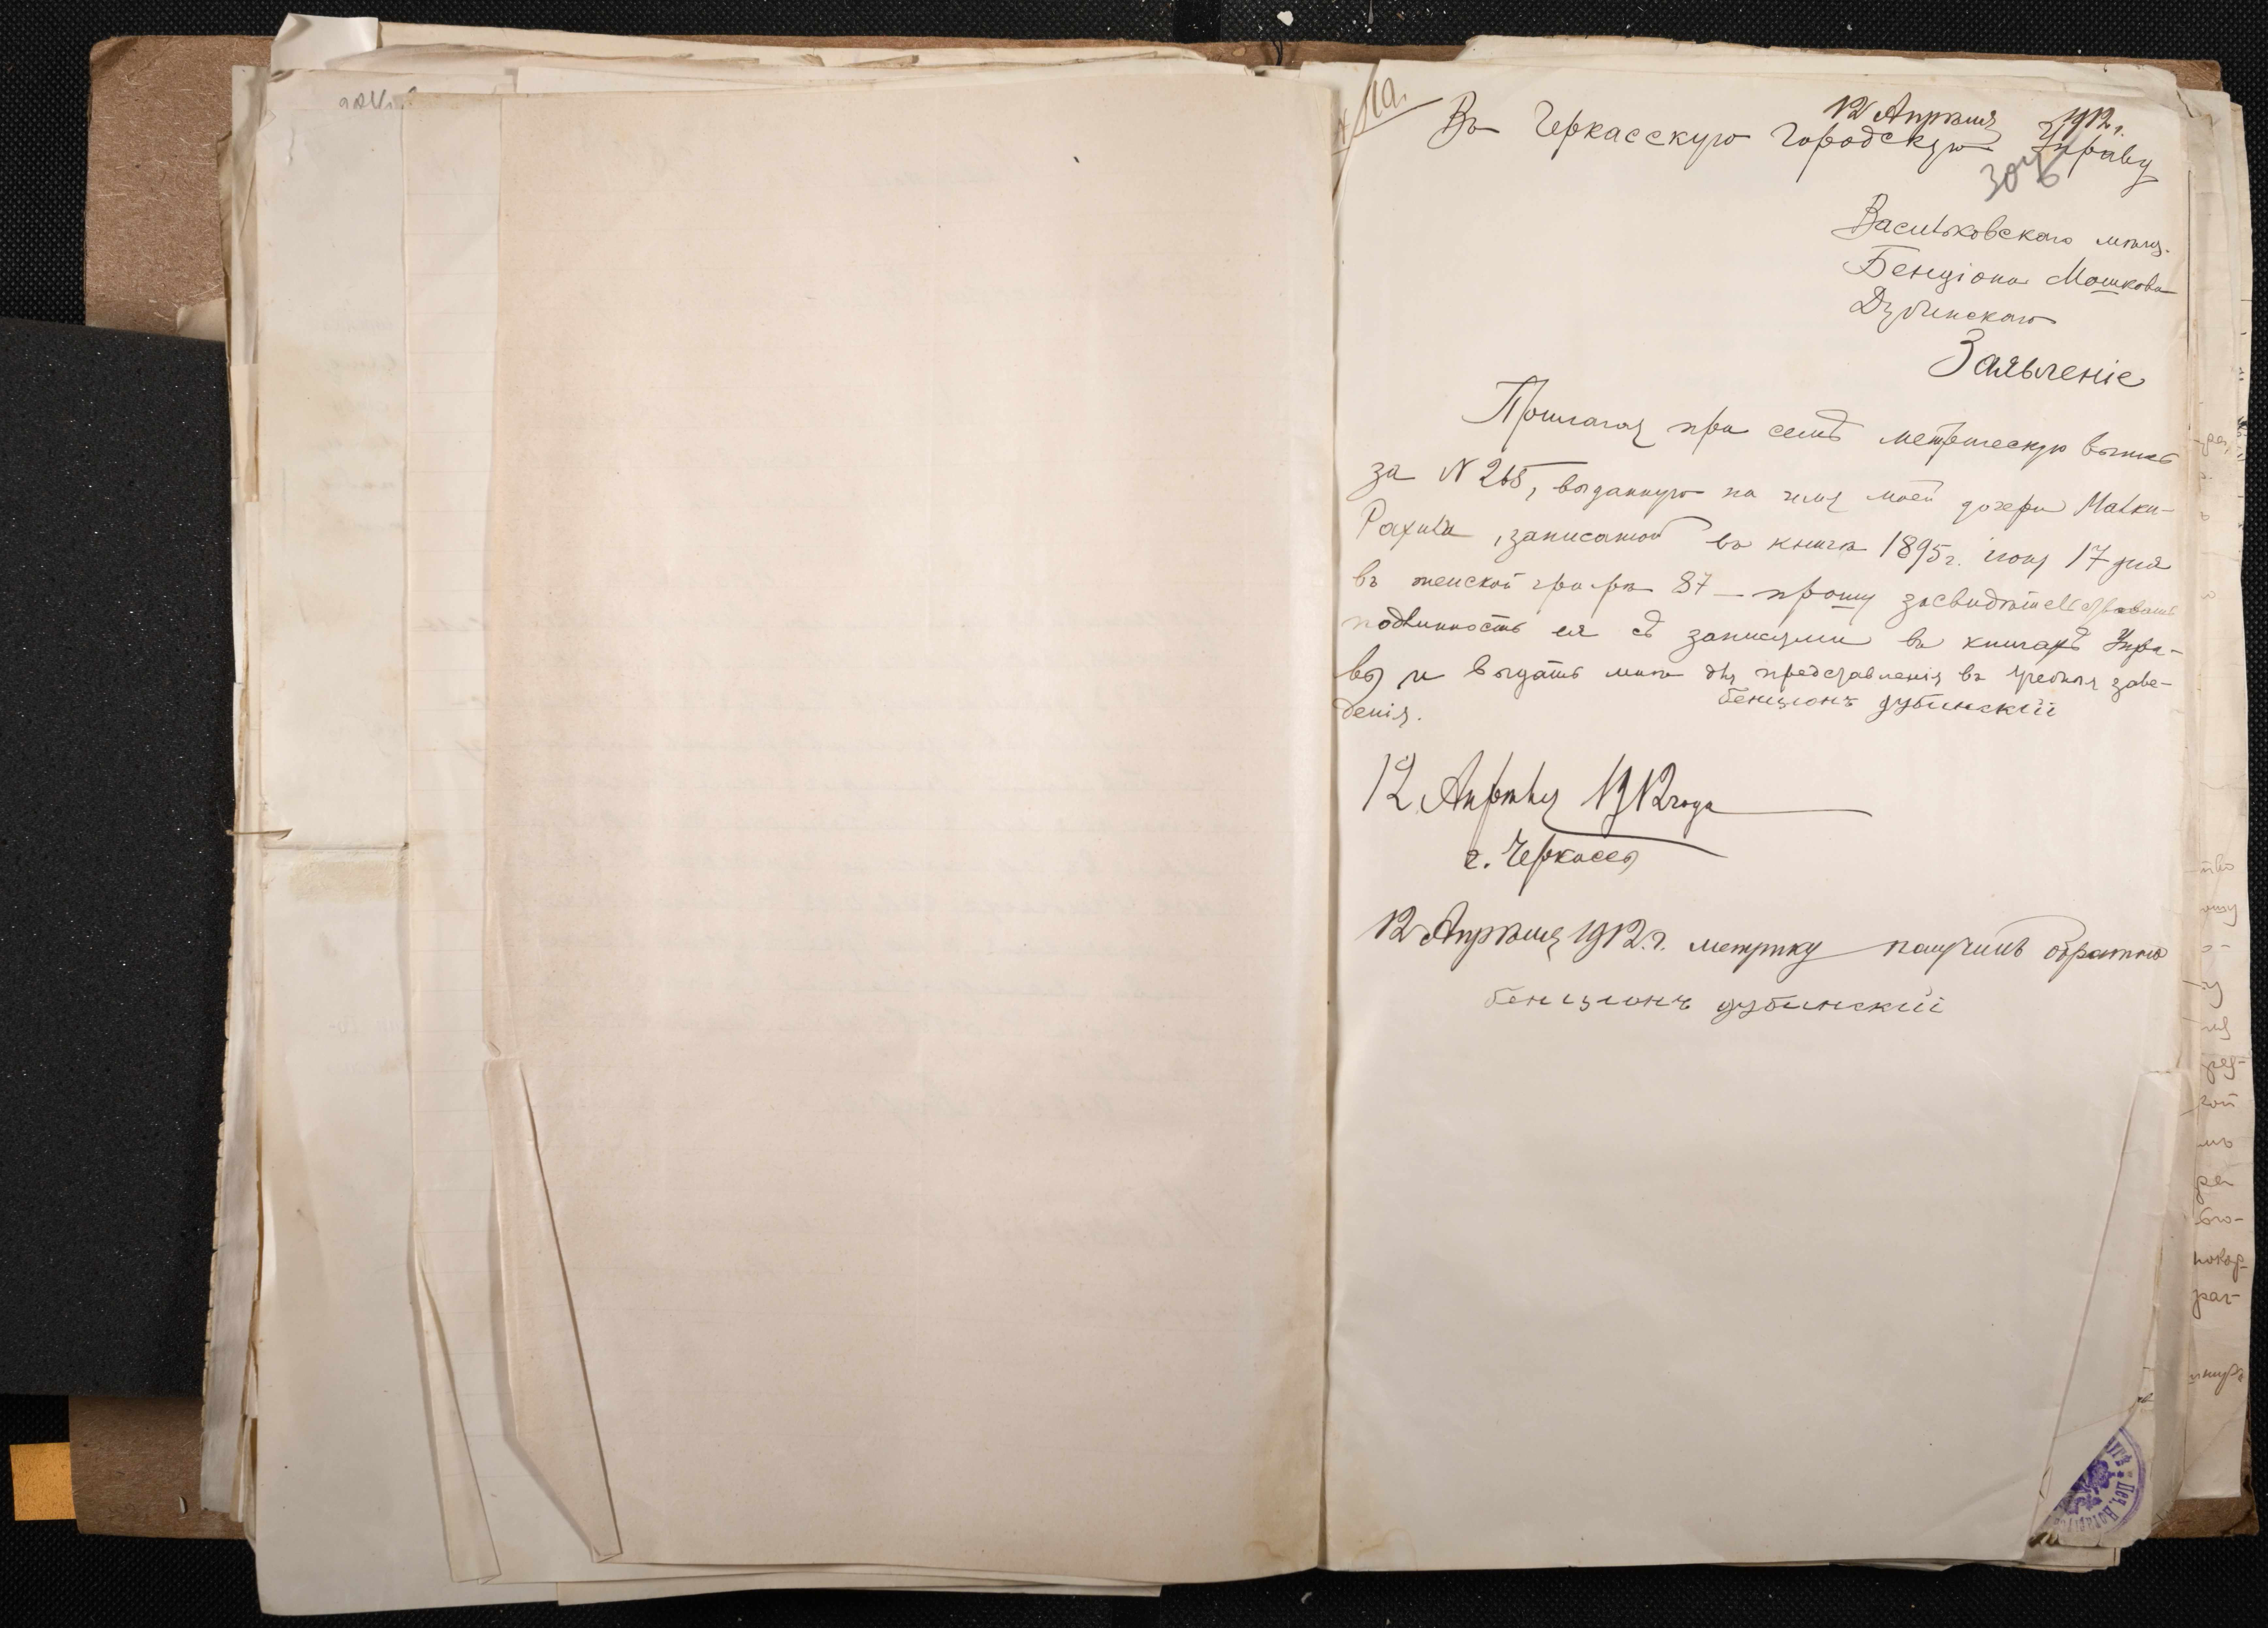 12 Апрѣля 1912 г.
Въ Черкасскую Городскую Управу
304
Васильковскаго мѣщ.
Бенціона Мошкова
Дубинскаго
Заявленіе
Прилагая при семъ метрическую выпись
за N 265, выданную на имя моей дочери Малки-
Рахили, записаной въ книгѣ 1895 г. іюня 17 дня
въ женской графѣ 87 — прошу засвидѣтельствовать
подлинность ея съ записями въ книгахъ Упра-
вы и выдать мнѣ для представленія въ учебныя заве-
денія.
бенционъ дубинскій
12 Апрѣля 1912 года
г. Черкассы
12 Апрѣля 1912 г. метрику получилъ обратно
бенционъ дубинскій